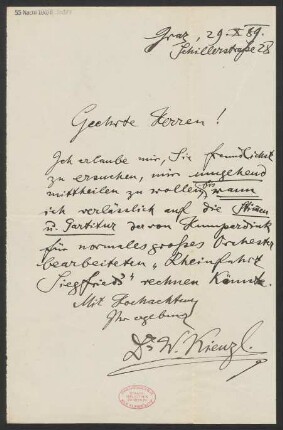 Graz, 29. X 89.
Schillerstraße 28
Geehrte Herren!
Ich erlaube mir, Sie freundlichst
zu ersuchen, mir umgehend
mittheilen zu wollen, bis wann
ich verlässlich auf die Stimmen
u. Partitur der von Humperdinck
für normales großes Orchester
bearbeiteten „Rheinfahrt
Siegfrieds" rechnen könnte.
Mit Hochachtung
Ihr ergebener
Dr W. Kienzl.